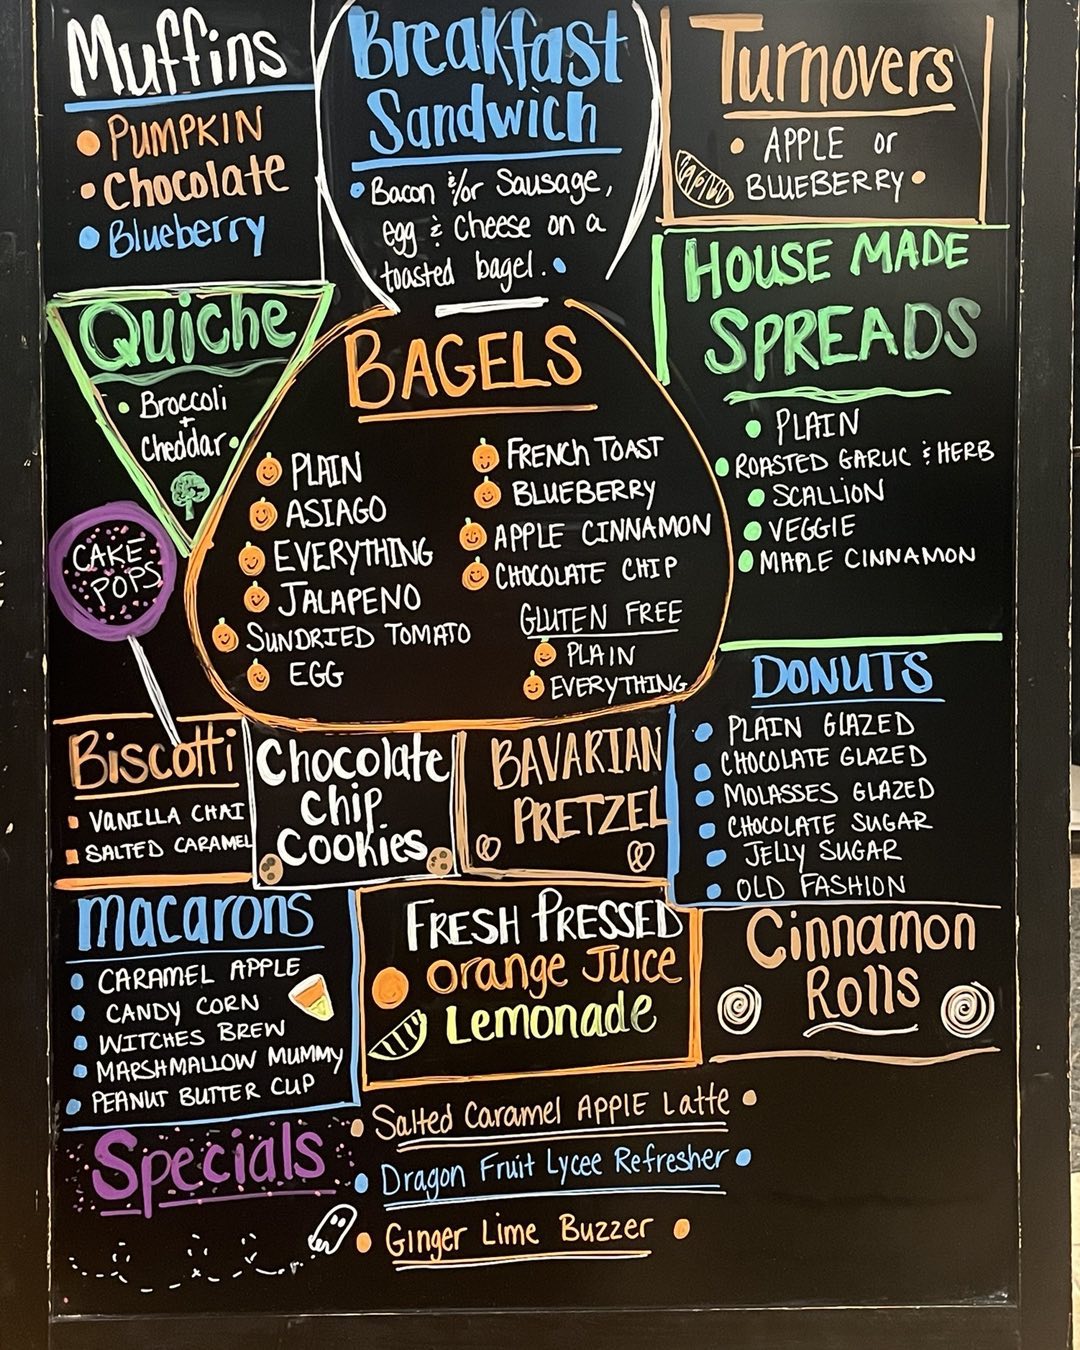 Muffins
• PUMPKIN
• Chocolate
• Blueberry
Breakfast
Sandwich
• Bacon &/or Sausage,
egg & Cheese on a
toasted bagel. •
Turnovers
• APPLE or
BLUEBERRY •
HOUSE MADE
SPREADS
• PLAIN
• ROASTED GARLIC & HERB
• SCALLION
• VEGGIE
• MAPLE CINNAMON
Quiche
• Broccoli
+
Cheddar •
CAKE
POPS
BAGELS
PLAIN
ASIAGO
EVERYTHING
JALAPENO
SUNDRIED TOMATO
EGG
FRENCH TOAST
BLUEBERRY
APPLE CINNAMON
CHOCOLATE CHIP
GLUTEN FREE
PLAIN
EVERYTHING
DONUTS
• PLAIN GLAZED
• CHOCOLATE GLAZED
• MOLASSES GLAZED
• CHOCOLATE SUGAR
• JELLY SUGAR
• OLD FASHION
Biscotti
• VANILLA CHAI
• SALTED CARAMEL
Chocolate
Chip
Cookies
BAVARIAN
PRETZEL
macarons
• CARAMEL APPLE
• CANDY CORN
• WITCHES BREW
• MARSHMALLOW MUMMY
• PEANUT BUTTER CUP
FRESH PRESSED
Orange Juice
Lemonade
Cinnamon
Rolls
Specials
• Salted Caramel APPlE Latte •
• Dragon Fruit Lycee Refresher •
• Ginger Lime Buzzer •